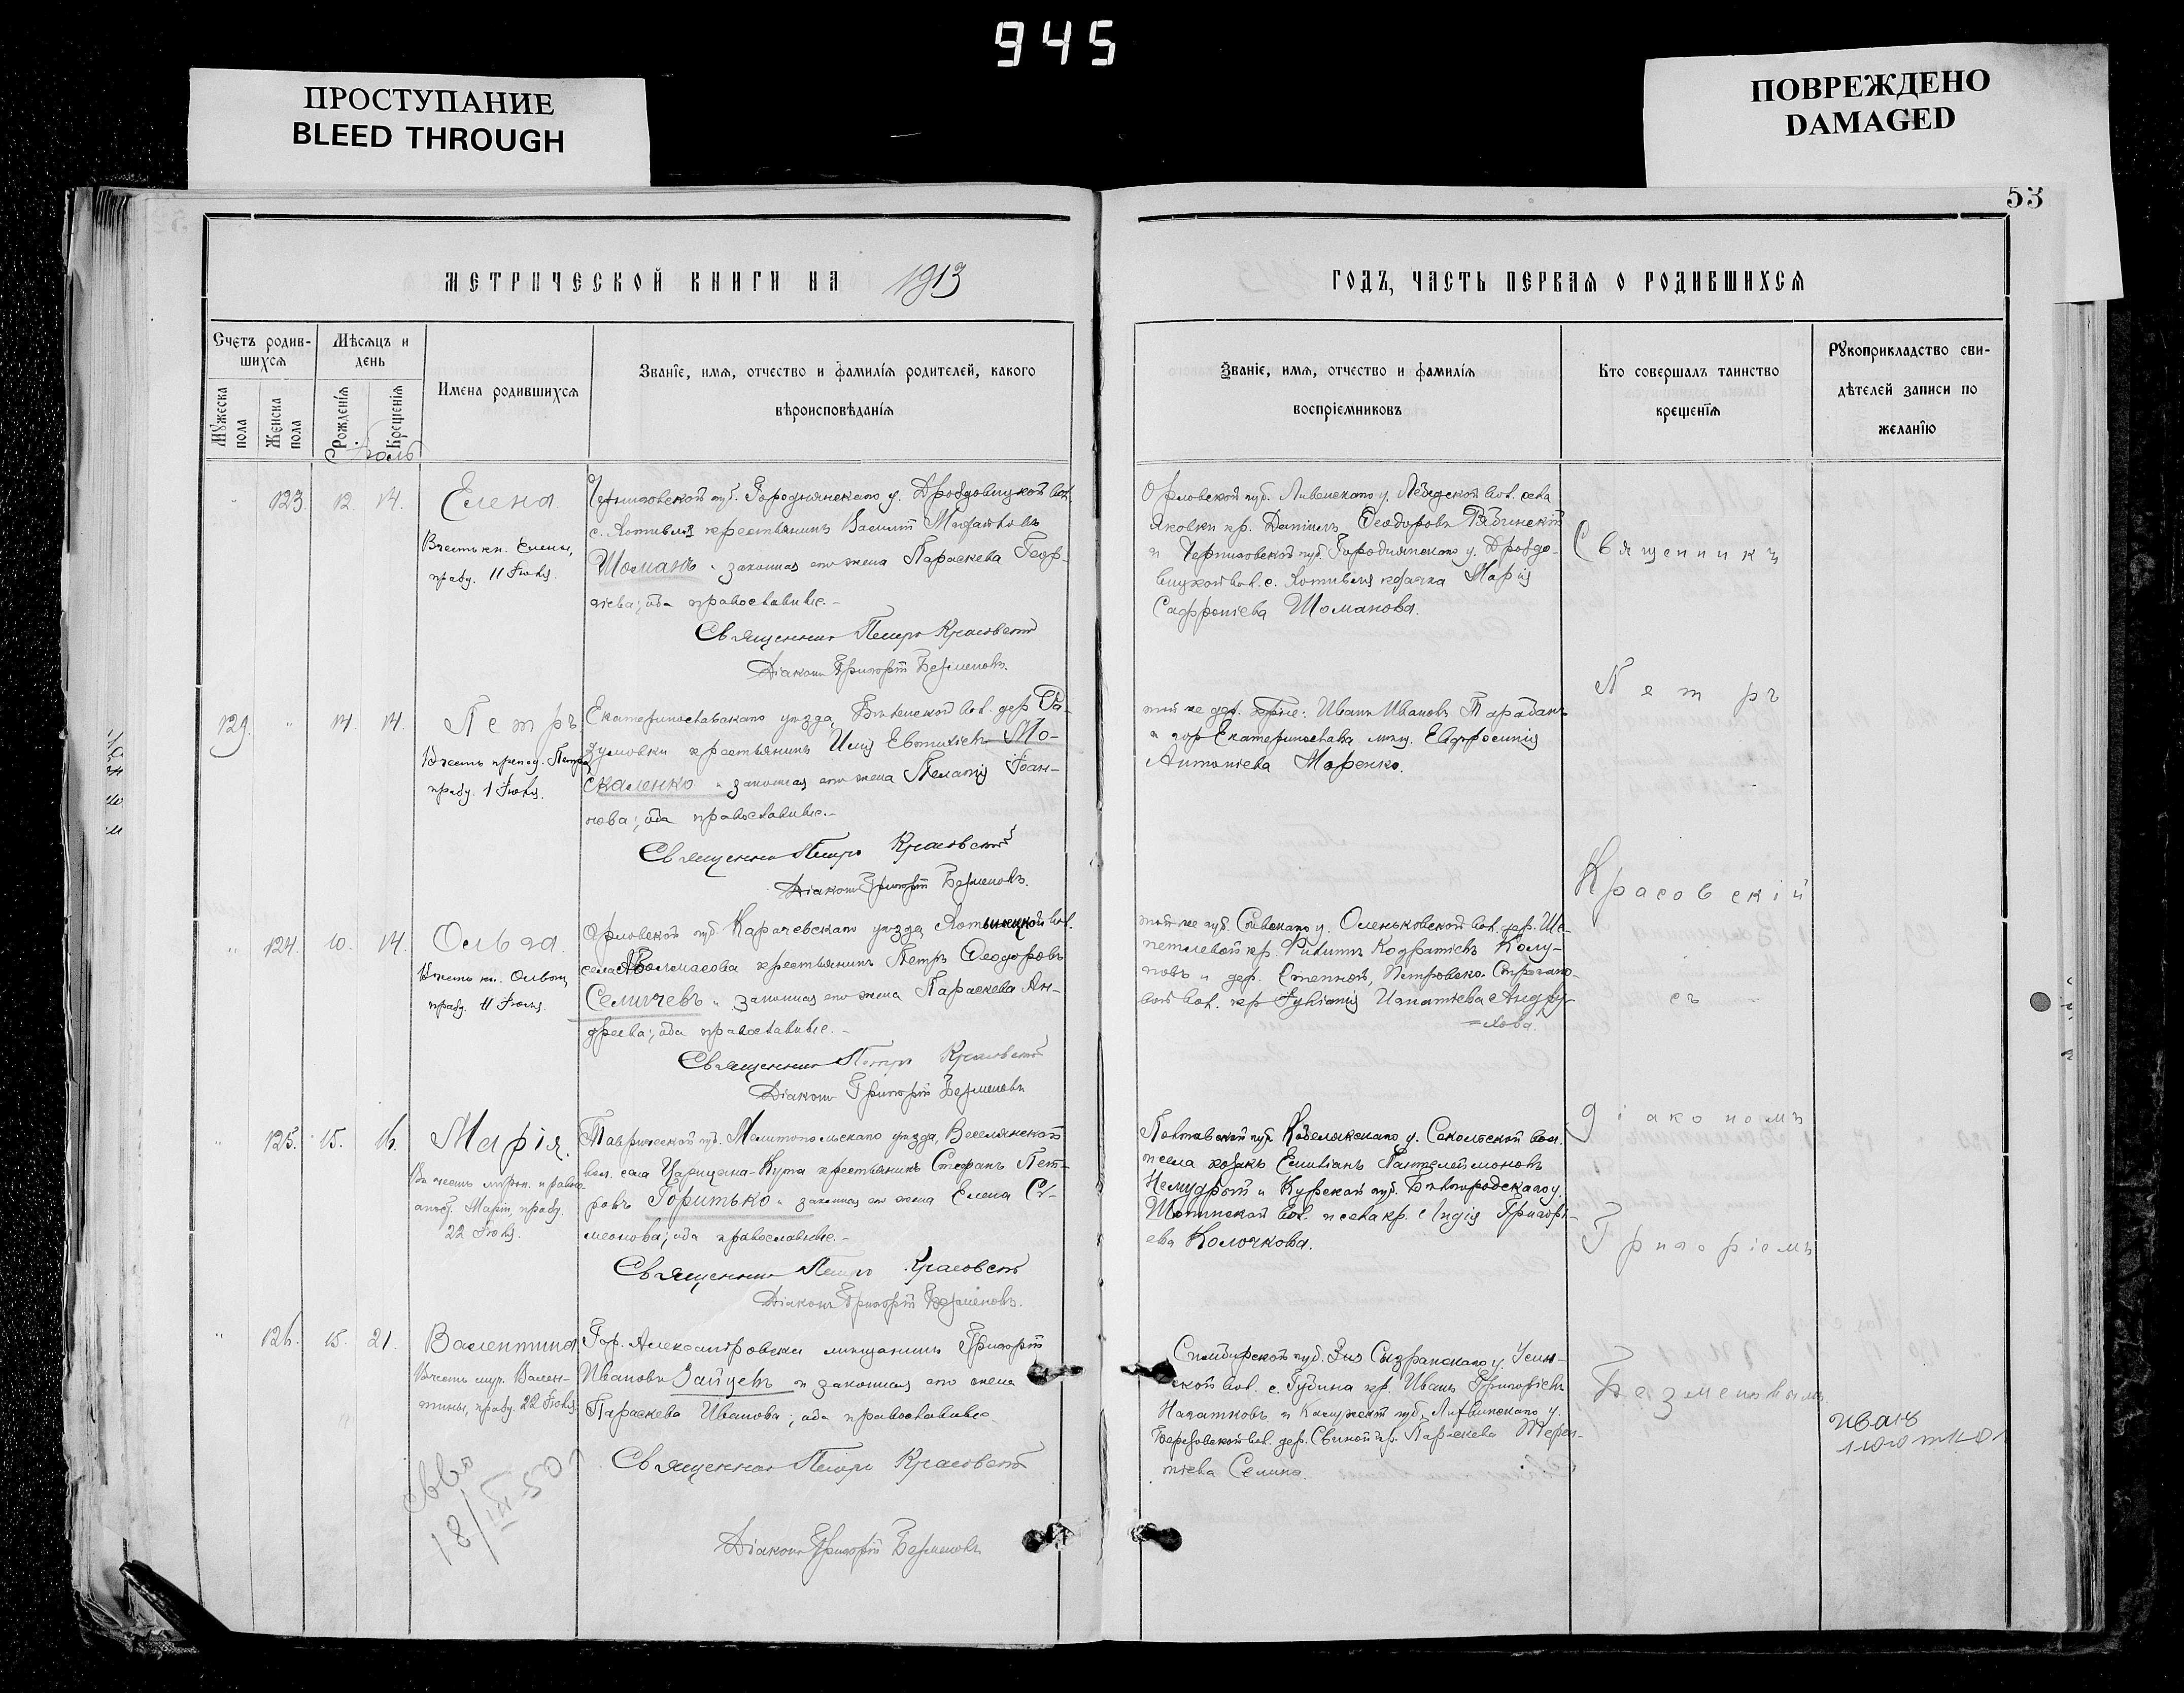 945
ПРОСТУПАНИЕ
BLEED THROUGH
ПОВРЕЖДЕНО
DAMAGED
53
МЕТРИЧЕСКОЙ КНИГИ НА 1913
ГОДЪ, ЧАСТЬ ПЕРВАЯ О РОДИВШИХСЯ
Счетъ родив-
шихся
Мужеска пола
Женска пола
Мѣсяцъ и
день
Рожденія
Крещенія
Имена родившихся
Званіе, имя, отчество и фамилія родителей, какого
вѣроисповѣданія
Званіе, имя, отчество и фамилія
воспріемниковъ
Кто совершалъ таинство
крещенія
Рукоприкладство сви-
дѣтелей записи по
желанію
Іюль
" 123. 12. 14. Елена.
В честь кн. Елены,
празд. 11 Іюля.
Черниговской губ. Городнянскаго у. Дроздовицкой вол.
с. Хотивля крестьянинъ Василій
Шоманъ и законная его жена Параскева Геор-
гіева; оба православные.-
Священникъ Петръ Красовскій
Діаконъ Григорій Безменовъ.
Орловской губ. Ливенскаго у. вол. села
Яковки кр. Даніилъ Ѳеодоровъ
и Черниговской губ. Городнянскаго у. Дроздо-
вицкой вол. с. Хотивля казачка Марія
Сафроніева Шоманова.
129. " 14. 14. Петръ
В честь препод. Петра,
празд. 1 Іюля.
Екатеринославскаго уѣзда, вол. дер. Ра-
зумовки крестьянинъ Илія Евтихіевъ Мо-
скаленко и законная его жена Пелагія Іоан-
нова; оба православные.-
Священникъ Петръ Красовскій
Діаконъ Григорій Безменовъ.
той же дер. Иванъ Ивановъ Тарабанъ
и гор. Екатеринослава мѣщ. Евфросинія
Антоніева Моренко.
" 124. 10. 14. Ольга.
В честь кн. Ольги,
празд. 11 Іюля.
Орловской губ. Карачевскаго уѣзда, вол.
села крестьянинъ Петръ Ѳеодоровъ
Селичевъ и законная его жена Параскева Ан-
дреева; оба православные.-
Священникъ Петръ Красовскій
Діаконъ Григорій Безменовъ
той же губ. у. вол. дер. Ше-
петлевой кр. Филиппъ Кодратіевъ Колу-
повъ и дер. Степной, вол. кр. Іуліанія Игнатіева Андрю-
=хова.
" 125. 15. 16. Марія.
В честь мурон. и равно-
апост. Маріи, празд.
22 Іюля.
Таврической губ. Мелитопольскаго уѣзда, Веселянской
вол. села Царицына-Кута крестьянинъ Стефанъ Пет-
ровъ Горитько и законная его жена Елена Си-
меонова; оба православные.-
Священникъ Петръ Красовскій
Діаконъ Григорій Безменовъ.
Полтавской губ. Кобелякскаго у. Сокольской вол.
и села козакъ Емиліанъ Пантелеймоновъ
Немудрый и Курской губ. Бѣлгородскаго у.
вол. и села кр. Лидія Григорі-
ева Колочкова.
" 126. 15. 21. Валентина
В честь муч. Вален-
тины, празд. 22 Іюля.
Гор. Александровска мѣщанинъ Григорій
Ивановъ Зайцевъ и законная его жена
Параскева Иванова; оба православные.
Священникъ Петръ Красовскій
Діаконъ Григорій Безменовъ
Симбирской губ. Сызранскаго у. Усин-
ской вол. с. Губина кр. Иванъ Григоріевъ
и Калужской губ. Лихвинскаго у.
Березовской вол. дер. кр. Параскева Терен-
тіева Селина.
Священникъ
Петръ
Красовскій
съ
діакономъ
Григоріемъ
Безменовымъ
18/III-50